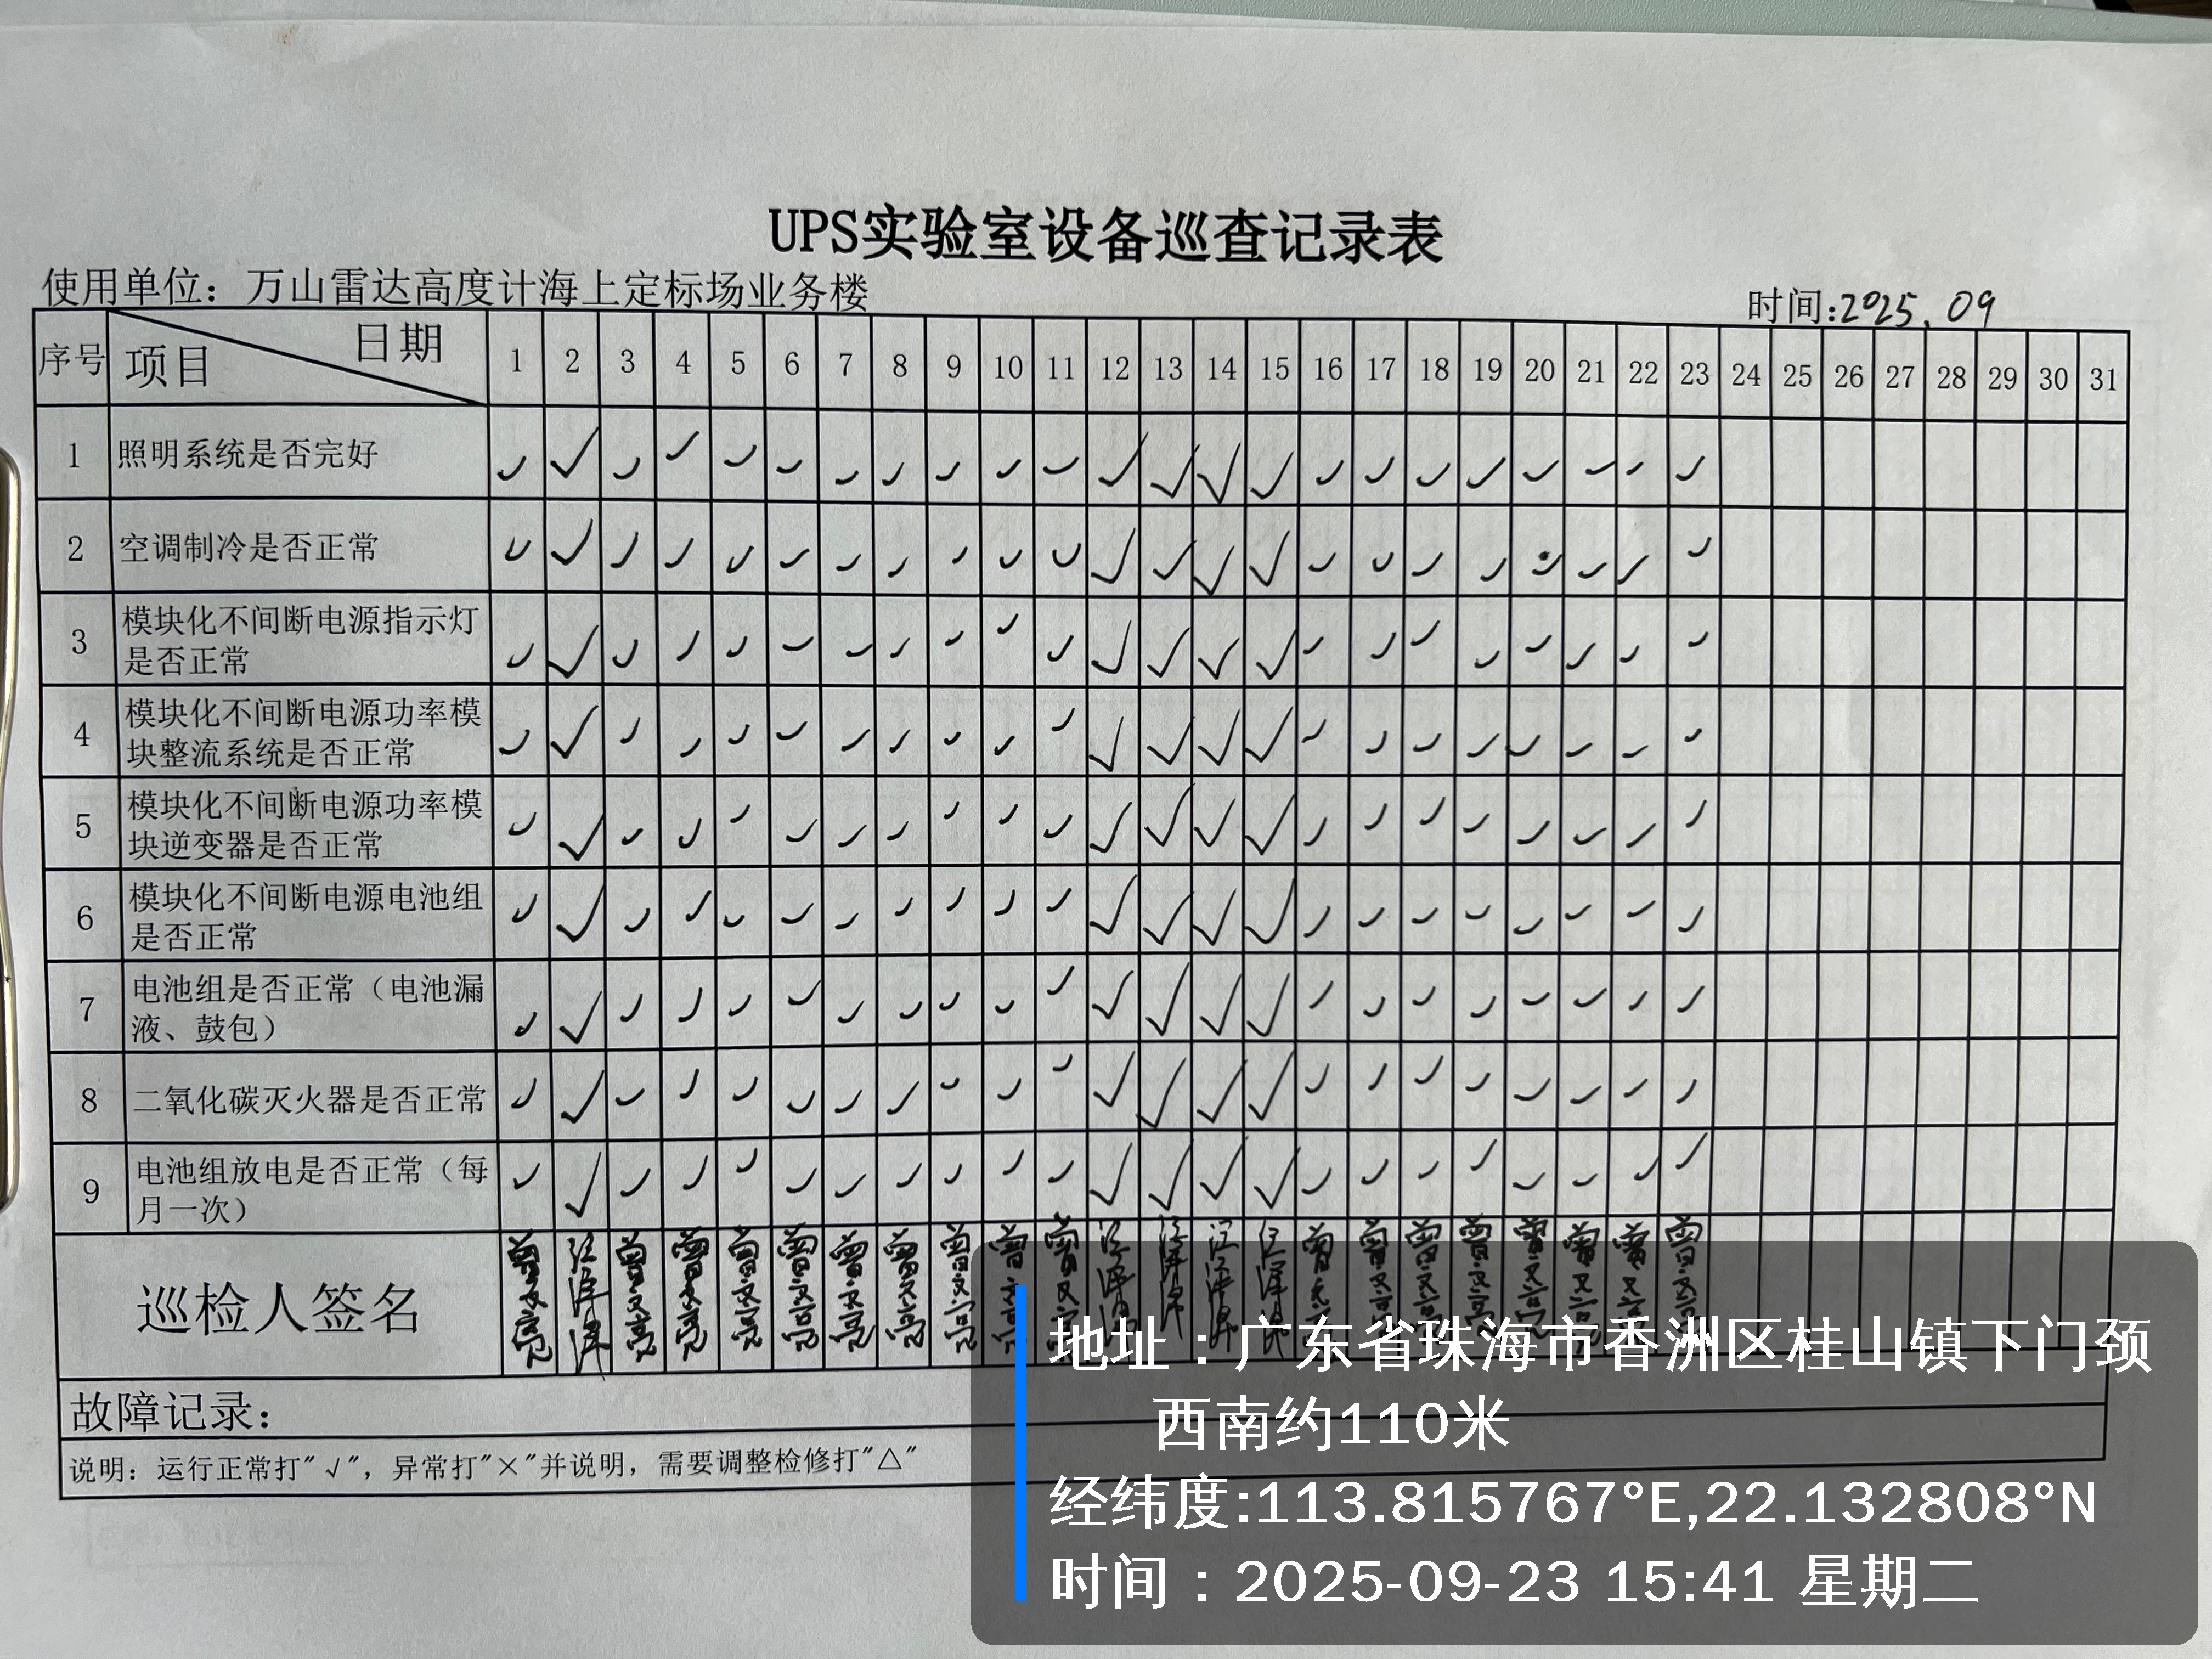 UPS实验室设备巡查记录表
使用单位：万山雷达高度计海上定标场业务楼
时间:2025.09
序号 项目 日期 1 2 3 4 5 6 7 8 9 10 11 12 13 14 15 16 17 18 19 20 21 22 23 24 25 26 27 28 29 30 31
1 照明系统是否完好 ✓ ✓ ✓ ✓ ✓ ✓ ✓ ✓ ✓ ✓ ✓ ✓ ✓ ✓ ✓ ✓ ✓ ✓ ✓ ✓ ✓ ✓ ✓
2 空调制冷是否正常 ✓ ✓ ✓ ✓ ✓ ✓ ✓ ✓ ✓ ✓ ✓ ✓ ✓ ✓ ✓ ✓ ✓ ✓ ✓ ✓ ✓ ✓ ✓
3 模块化不间断电源指示灯
是否正常 ✓ ✓ ✓ ✓ ✓ ✓ ✓ ✓ ✓ ✓ ✓ ✓ ✓ ✓ ✓ ✓ ✓ ✓ ✓ ✓ ✓ ✓ ✓
4 模块化不间断电源功率模
块整流系统是否正常 ✓ ✓ ✓ ✓ ✓ ✓ ✓ ✓ ✓ ✓ ✓ ✓ ✓ ✓ ✓ ✓ ✓ ✓ ✓ ✓ ✓ ✓ ✓
5 模块化不间断电源功率模
块逆变器是否正常 ✓ ✓ ✓ ✓ ✓ ✓ ✓ ✓ ✓ ✓ ✓ ✓ ✓ ✓ ✓ ✓ ✓ ✓ ✓ ✓ ✓ ✓ ✓
6 模块化不间断电源电池组
是否正常 ✓ ✓ ✓ ✓ ✓ ✓ ✓ ✓ ✓ ✓ ✓ ✓ ✓ ✓ ✓ ✓ ✓ ✓ ✓ ✓ ✓ ✓ ✓
7 电池组是否正常（电池漏
液、鼓包） ✓ ✓ ✓ ✓ ✓ ✓ ✓ ✓ ✓ ✓ ✓ ✓ ✓ ✓ ✓ ✓ ✓ ✓ ✓ ✓ ✓ ✓ ✓
8 二氧化碳灭火器是否正常 ✓ ✓ ✓ ✓ ✓ ✓ ✓ ✓ ✓ ✓ ✓ ✓ ✓ ✓ ✓ ✓ ✓ ✓ ✓ ✓ ✓ ✓ ✓
9 电池组放电是否正常（每
月一次） ✓ ✓ ✓ ✓ ✓ ✓ ✓ ✓ ✓ ✓ ✓ ✓ ✓ ✓ ✓ ✓ ✓ ✓ ✓ ✓ ✓ ✓ ✓
巡检人签名
故障记录：
说明：运行正常打"√"，异常打"×"并说明，需要调整检修打"△"
地址：广东省珠海市香洲区桂山镇下门颈
西南约110米
经纬度:113.815767°E,22.132808°N
时间：2025-09-23 15:41 星期二